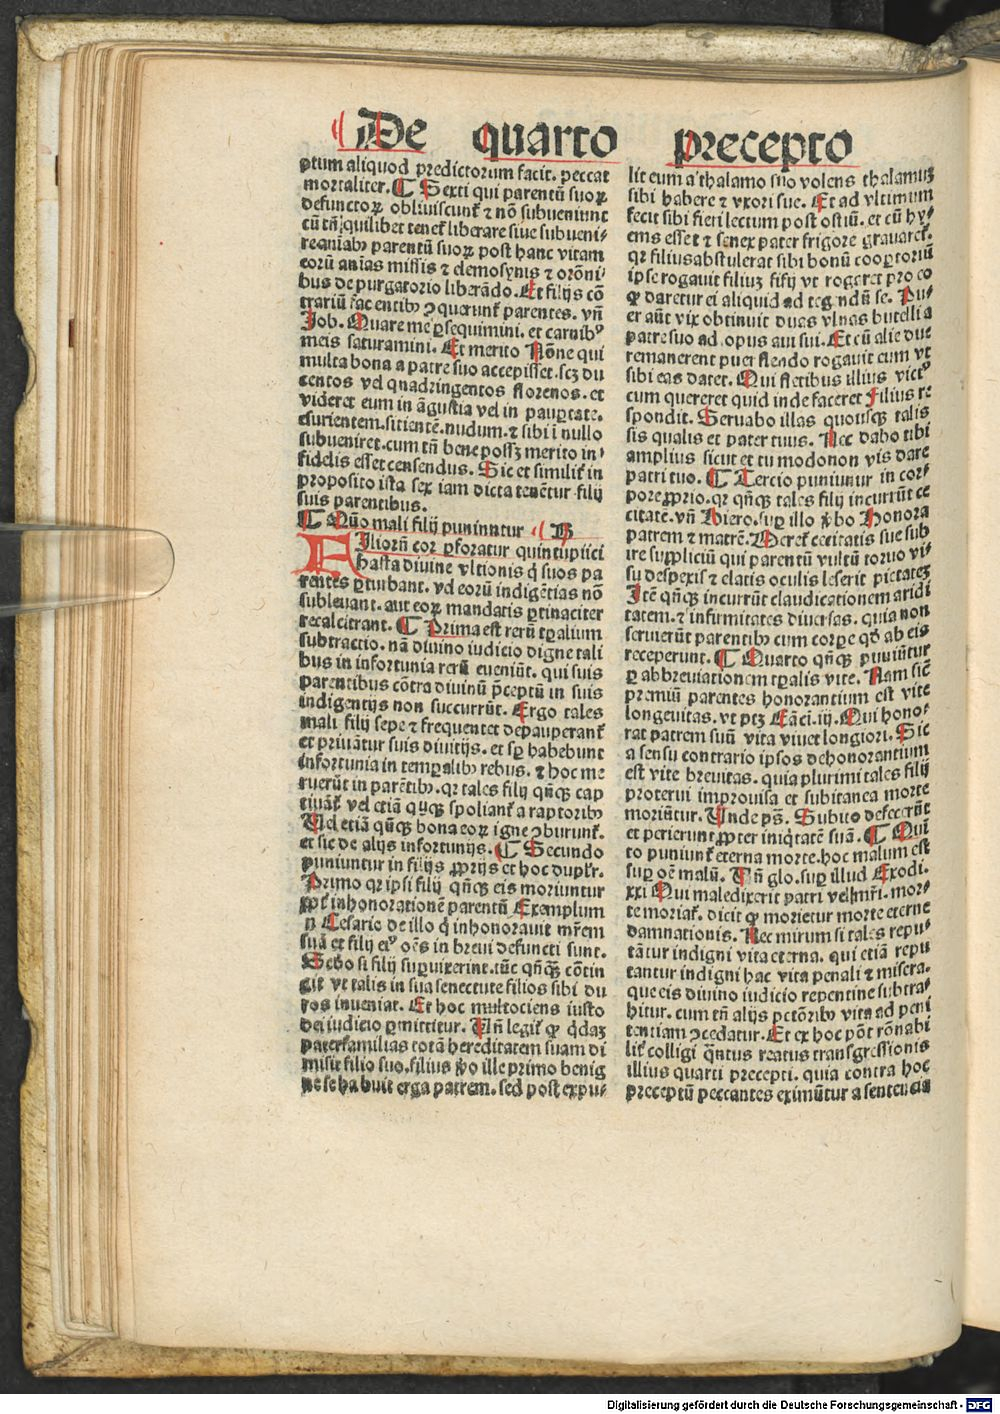 De quarto precepto
ptum aliquod predictorum facit. peccat
mortaliter. ¶ Sexti qui parentū suoꝝ
defunctoꝝ obliuiscunt̄ ⁊ nō subueniunt
cū tn̄ quilibet tenet̄ liberare siue subueni⸗
re aniab⁹ parentū suoꝝ post hanc vitam
eorū aīas missis ⁊ elemosynis ⁊ orōni⸗
bus de purgatorio liberādo. Et filijs cō
trariū facientib⁹ ꝯquerunt̄ parentes. vn̄
Job. Quare me ꝑsequimini. et carnib⁹
meis saturamini. Et merito Nōne qui
multa bona a patre suo accepisset. scꝫ du
centos vel quadringentos florenos. et
videret eum in āgustia vel in paupertate.
esurientem. sitientē. nudum. ⁊ sibi ī nullo
subueniret. cum tn̄ bene possꝫ merito in⸗
fidelis esset censendus. Sic et similit̄ in
proposito ista sex iam dicta tenētur filij
suis parentibus.
¶ Quō mali filij puniuntur B
Filiorū cor ꝑforatur quintuplici
hasta diuine vltionis q̄ suos pa
rentes ꝑturbant. vel eorū indigētias nō
subleuant. aut eoꝝ mandatis ꝑtinaciter
recalcitrant. ¶ Prima est rerū tꝑalium
subtractio. nā diuino iudicio digne tali
bus in infortunia rerū eueniūt. qui suis
parentibus cōtra diuinū p̄ceptū in suis
indigentijs non succurrūt. Ergo tales
mali filij sepe ⁊ frequenter depauperant̄
et priuātur suis diuitijs. et sꝑ habebunt
infortunia in tempꝑalib⁹ rebus. ⁊ hoc me
ruerūt in parētib⁹. qꝛ tales filij qn̄qꝫ cap
tiuāt̄ vel etiā qn̄qꝫ spoliant̄ a raptorib⁹
Uel etiā qn̄qꝫ bona eoꝝ igne ꝯburunt̄.
et sic de alijs infortunijs. ¶ Secundo
puniuntur in filijs ꝓprijs et hoc duplr̄.
Primo qꝛ ipsi filij qn̄qꝫ eis moriuntur
ꝓpt̄ inhonorationē parentū Exemplum
ꝟ Cesario de illo q̄ inhonorauit mr̄em
suā et filij ei⁹ oēs in breui defuncti sunt.
Secdo si filij superuixerint. tūc qn̄qꝫ cōtin
git vt talis in sua senectute filios sibi du
ros inueniat. Et hoc multociens iusto
dei iudicio ꝑmittitur. Un̄ legit̄ ꝙ q̄daꝫ
paterfamilias totā hereditatem suam di
misit filio suo. filius ꝟo ille primo benig
ne se habuit erga patrem. sed post expu⸗
lit eum a thalamo suo volens thalamuꝫ
sibi habere ⁊ vxori sue. Et ad vltimum
fecit sibi fieri lectum post ostiū. et cū hy⸗
ems esset ⁊ senex pater frigore grauaret̄.
qꝛ filius abstulerat sibi bonū coopertoriū
ipse rogauit filiuꝫ filij vt rogeret pro eo
ꝙ daretur ei aliquid ad tegendū se. Pu⸗
er aūt vix obtinuit duas vlnas butelli a
patre suo ad opus aui sui. Et cū alie due
remanerent puer flendo rogauit eum vt
sibi eas daret. Qui fletibus illius vict⁹
cum quereret quid inde faceret Filius re
spondit. Seruabo illas quousqꝫ talis
sis qualis et pater tuus. Nec dabo tibi
amplius sicut et tu modo non vis dare
patri tuo. ¶ Tercio puniuntur in cor⸗
pore ꝓprio. qꝛ qn̄qꝫ tales filij incurrūt ce
citatē. vn̄ Hiero. suꝑ illo ꝟbo Honora
patrem ⁊ matrē. Meret̄ cecitatis sue sub
ire suppliciū qui parentū vultū toruo vi⸗
su despexit ⁊ elatis oculis leserit pietateꝫ
Itē qn̄qꝫ incurrūt claudicationem aridi
tatem. ⁊ infirmitates diuersas. quia non
seruierūt parentib⁹ cum corpe qd̄ ab eis
receperunt. ¶ Quarto qn̄qꝫ puniūtur
ꝑ abbreuiationem tꝑalis vite. Nam sic̄
premiū parentes honorantium est vite
longeuitas. vt ptꝫ Eccī. iij. Qui hono⸗
rat patrem suū vita viuet longiori. Sic
a sensu contrario ipsos dehonorantium
est vite breuitas. quia plurimi tales filij
proterui improuisa et subitanea morte
moriūtur. Unde ps̄. Subito defecerūt
et perierunt ꝓpter iniq̄tatē suā. ¶ Quī
to puniunt̄ eterna morte. hoc malum est
suꝑ oē malū. Un̄ glo. suꝑ illud Exodi.
xxi Qui maledixerit patri vel m̄ri. mor⸗
te moriat̄. dicit ꝙ morietur morte eterne
damnationis. Nec mirum si tales repu⸗
tātur indigni vita eterna. qui etiā repu
tantur indigni hac vita penali ⁊ misera.
que eis diuino iudicio repentine subtra⸗
hitur. cum tn̄ alijs pctōrib⁹ vita ad peni
tentiam ꝯcedatur. Et ex hoc pōt rōnabi
lit̄ colligi q̄ntus reatus transgressionis
illius quarti precepti. quia contra hoc
preceptū peccantes eximūtur a sentencia
Digitalisierung gefördert durch die Deutsche Forschungsgemeinschaft - DFG